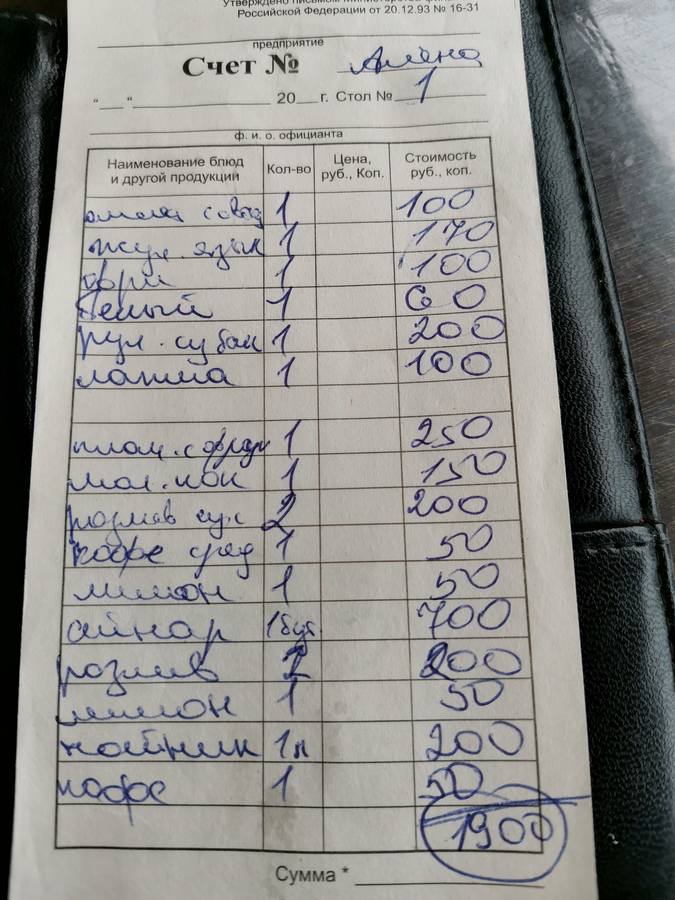 Утверждено письмом Министерства фин
Российской Федерации от 20.12.93 № 16-31
предприятие
Счет № Алёна
"__" ________ 20__г. Стол № 1
ф. и. о. официанта
Наименование блюд и другой продукции Кол-во Цена, руб., Коп. Стоимость руб., коп.
1 100
жул. язык 1 170
фри 1 100
белый 1 60
рул. с убан 1 200
лапша 1 100
1 250
мол. кок 1 150
розлив сух 2 200
кофе сред 1 50
лимон 1 50
айнар 1бут 700
розлив 2 200
лимон 1 50
чайник 1л 200
кофе 1 50
1900
Сумма *